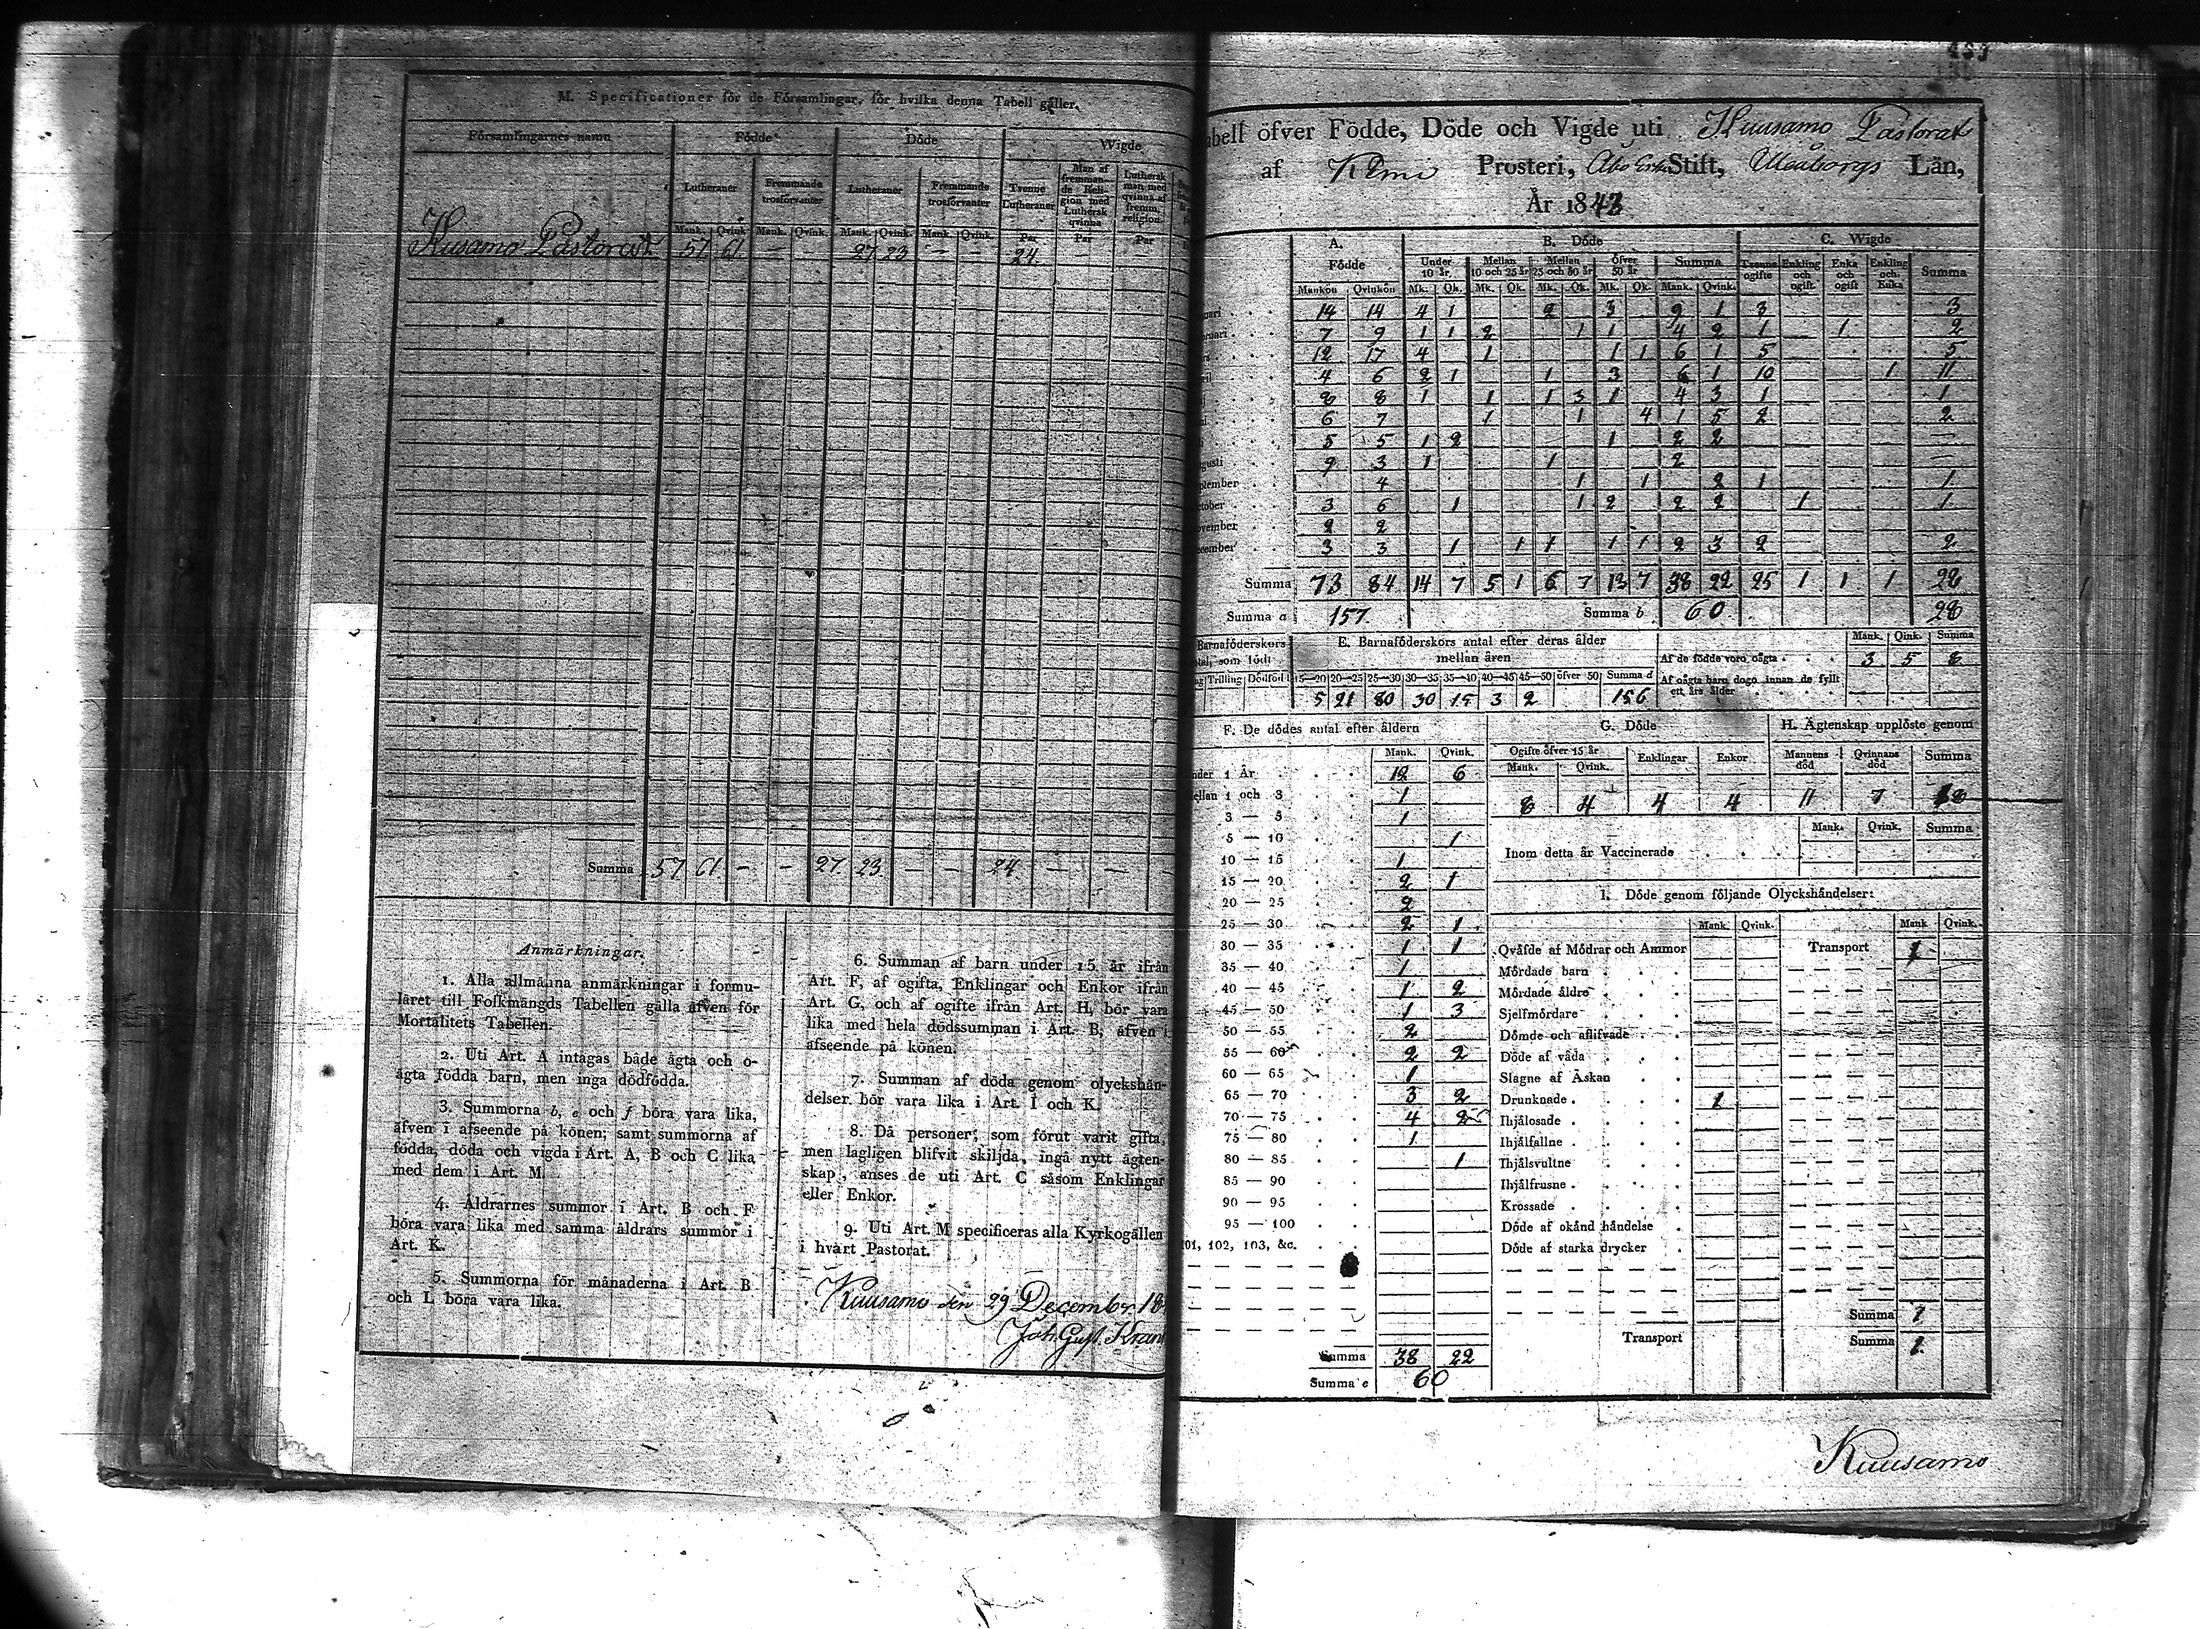 M. Specificationer för de Församlingar, för hvilka denna Tabell gäller.
Församlingarnes namn Födde Döde Wigde
Lutheraner Fremmande trosförvanter Lutheraner Fremmande trosförvanter Tvenne Lutheraner Man af fremmande Religion med Luthersk qvinna Luthersk man med qvinna af fremm. religion
Mank. Qvink. Mank. Qvink. Mank. Qvink. Mank. Qvink. Par Par Par
Kusamo Pastorat 57 61 — — 27 23 — — 24 — —
Summa 57 61 — — 27 23 — — 24 — — —
Anmärkningar.
1. Alla allmänna anmärkningar i formu-
läret till Folkmängds Tabellen gälla äfven för
Mortalitets Tabellen.
2. Uti Art. A intagas både ägta och o-
ägta födda barn, men inga dödfödda.
3. Summorna b, e och f böra vara lika,
äfven i afseende på könen; samt summorna af
födda, döda och vigda i Art. A, B och C lika
med dem i Art. M.
4. Åldrarnes summor i Art. B och F
böra vara lika med samma åldrars summor i
Art. K.
5. Summorna för månaderna i Art. B
och L böra vara lika.
6. Summan af barn under 15 år ifrån
Art. F, af ogifta, Enklingar och Enkor ifrån
Art. G, och af ogifte ifrån Art. H, bör vara
lika med hela dödssumman i Art. B, äfven i
afseende på könen.
7. Summan af döda genom olyckshän-
delser bör vara lika i Art. I och K.
8. Då personer, som förut varit gifta,
men lagligen blifvit skiljda, ingå nytt ägten-
skap, anses de uti Art. C såsom Enklingar
eller Enkor.
9. Uti Art. M specificeras alla Kyrkogällen
i hvart Pastorat.
Kuusamo den 29 December 18
Joh. Gust. Kran
abell öfver Födde, Döde och Vigde uti Kuusamo Pastorat
af Kemi Prosteri, Åbo Stift, Uleåborgs Län,
År 1843
A. Födde B. Döde C. Wigde
Under 10 år Mellan 10 och 25 år Mellan 25 och 50 år Öfver 50 år Summa Tvenne ogifte Enkling och ogift Enka och ogift Enkling och Enka Summa
Mankön Qvinkön Mk. Qk. Mk. Qk. Mk. Qk. Mk. Qk. Mank. Qvink.
uari 14 14 4 1 2 3 9 1 3 3
bruari 7 9 1 1 2 1 1 4 2 1 1 2
12 17 4 1 1 1 6 1 5 5
ril 4 6 2 1 1 3 6 1 10 1 11
8 8 1 1 1 3 1 4 3 1 1
6 7 1 1 4 1 5 2 2
5 5 1 2 1 2 2 —
gusti 9 3 1 1 2 —
ptember 4 1 1 2 1 1
ctober 3 6 1 1 2 2 2 1 1
ovember 2 2
ecember 3 3 1 1 1 1 1 2 3 2 2
Summa 73 84 14 7 5 1 6 7 13 7 38 22 25 1 1 1 28
Summa a 157 Summa b 60 28
Barnaföderskors
tal, som födt
Trilling Dödfödt
E. Barnaföderskors antal efter deras ålder
mellan åren
15—20 20—25 25—30 30—35 35—40 40—45 45—50 öfver 50 Summa d
5 21 80 30 15 3 2 156
Mank. Qink. Summa
Af de födde voro oägta 3 5 8
Af oägta barn dogo innan de fyllt
ett års ålder
F. De dödes antal efter åldern
Mank. Qvink.
nder 1 År 12 6
ellan 1 och 3 1
3 — 5 1
5 — 10 1
10 — 15 1
15 — 20 2 1
20 — 25 2
25 — 30 2 1
30 — 35 1 1
35 — 40 1
40 — 45 1 2
45 — 50 1 3
50 — 55 2
55 — 60 2 2
60 — 65 1
65 — 70 3 2
70 — 75 4 2
75 — 80 1
80 — 85 1
85 — 90
90 — 95
95 — 100
101, 102, 103, &c.
Summa 38 22
Summa e 60
G. Döde
Ogifte öfver 15 år Enklingar Enkor
Mank. Qvink.
8 4 4 4
H. Ägtenskap upplöste genom
Mannens död Qvinnans död Summa
11 7 18
Mank. Qvink. Summa
Inom detta år Vaccinerade
I. Döde genom följande Olyckshändelser:
Mank. Qvink. Mank Qvink.
Qväfde af Mödrar och Ammor Transport 1
Mördade barn
Mördade äldre
Sjelfmördare
Dömde och aflifvade
Döde af våda
Slagne af Åskan
Drunknade 1
Ihjälosade
Ihjälfallne
Ihjälsvultne
Ihjälfrusne
Krossade
Döde af okänd händelse
Döde af starka drycker
Summa 1
Transport Summa 1
Kuusamo